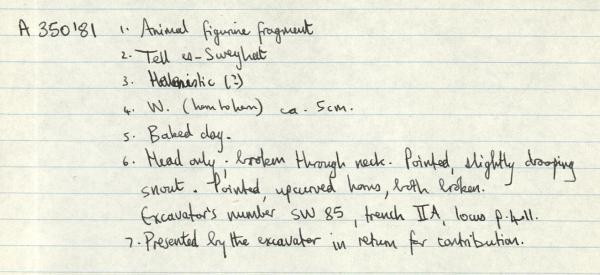 A 350'81 1. Animal figurine fragment
2. Tell es-Sweyhat
3. Hellenistic (?)
4. W. (horn to horn) ca. 5cm.
5. Baked clay.
6. Head only; broken through neck. Pointed, slightly drooping
snout. Pointed, upcurved horns, both broken.
Excavator's number SW 85, trench IIA, locus
7. Presented by the excavator in return for contribution.